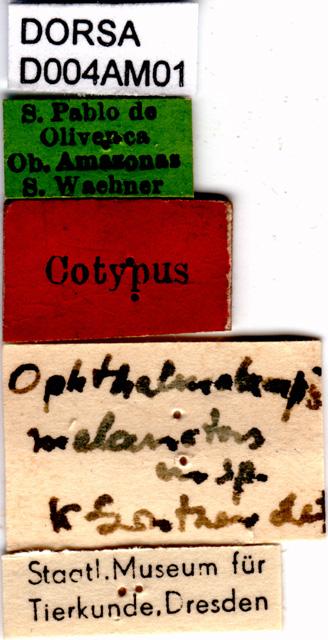 DORSA
D004AM01
S. Pablo de
Olivença
Ob. Amazonas
S. Waehner
Cotypus
Ophthalmolampis
n. sp.
K. Günther det
Staatl. Museum für
Tierkunde, Dresden